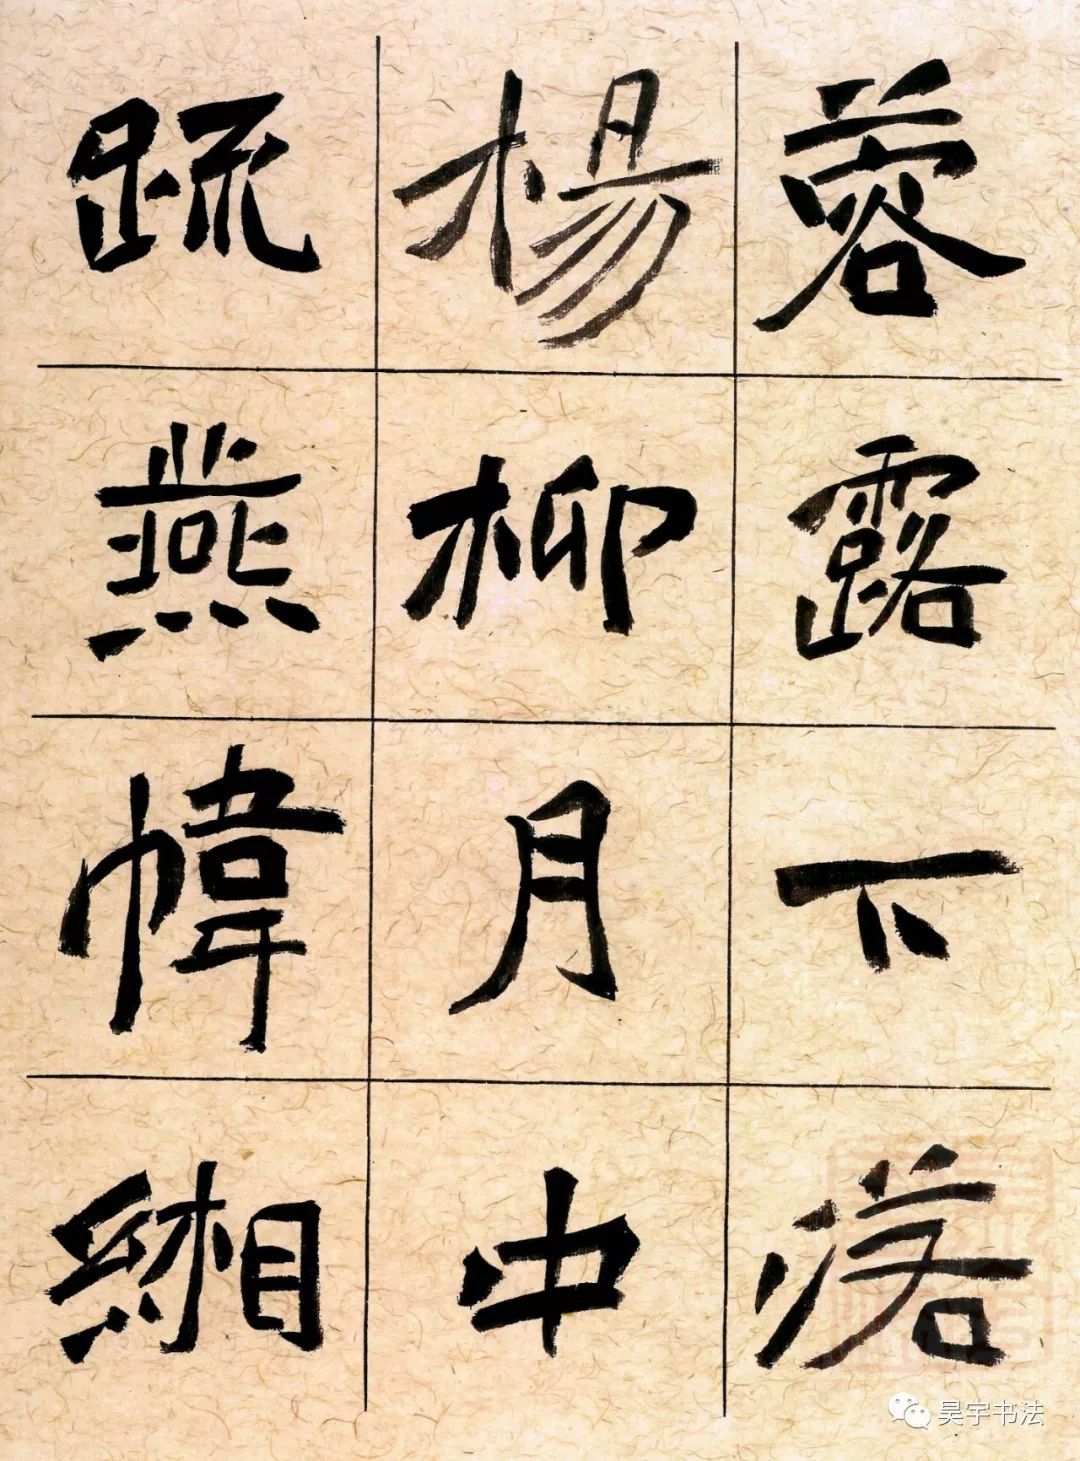 蓉露下落
楊柳月中
疏燕幃緗
昊宇书法